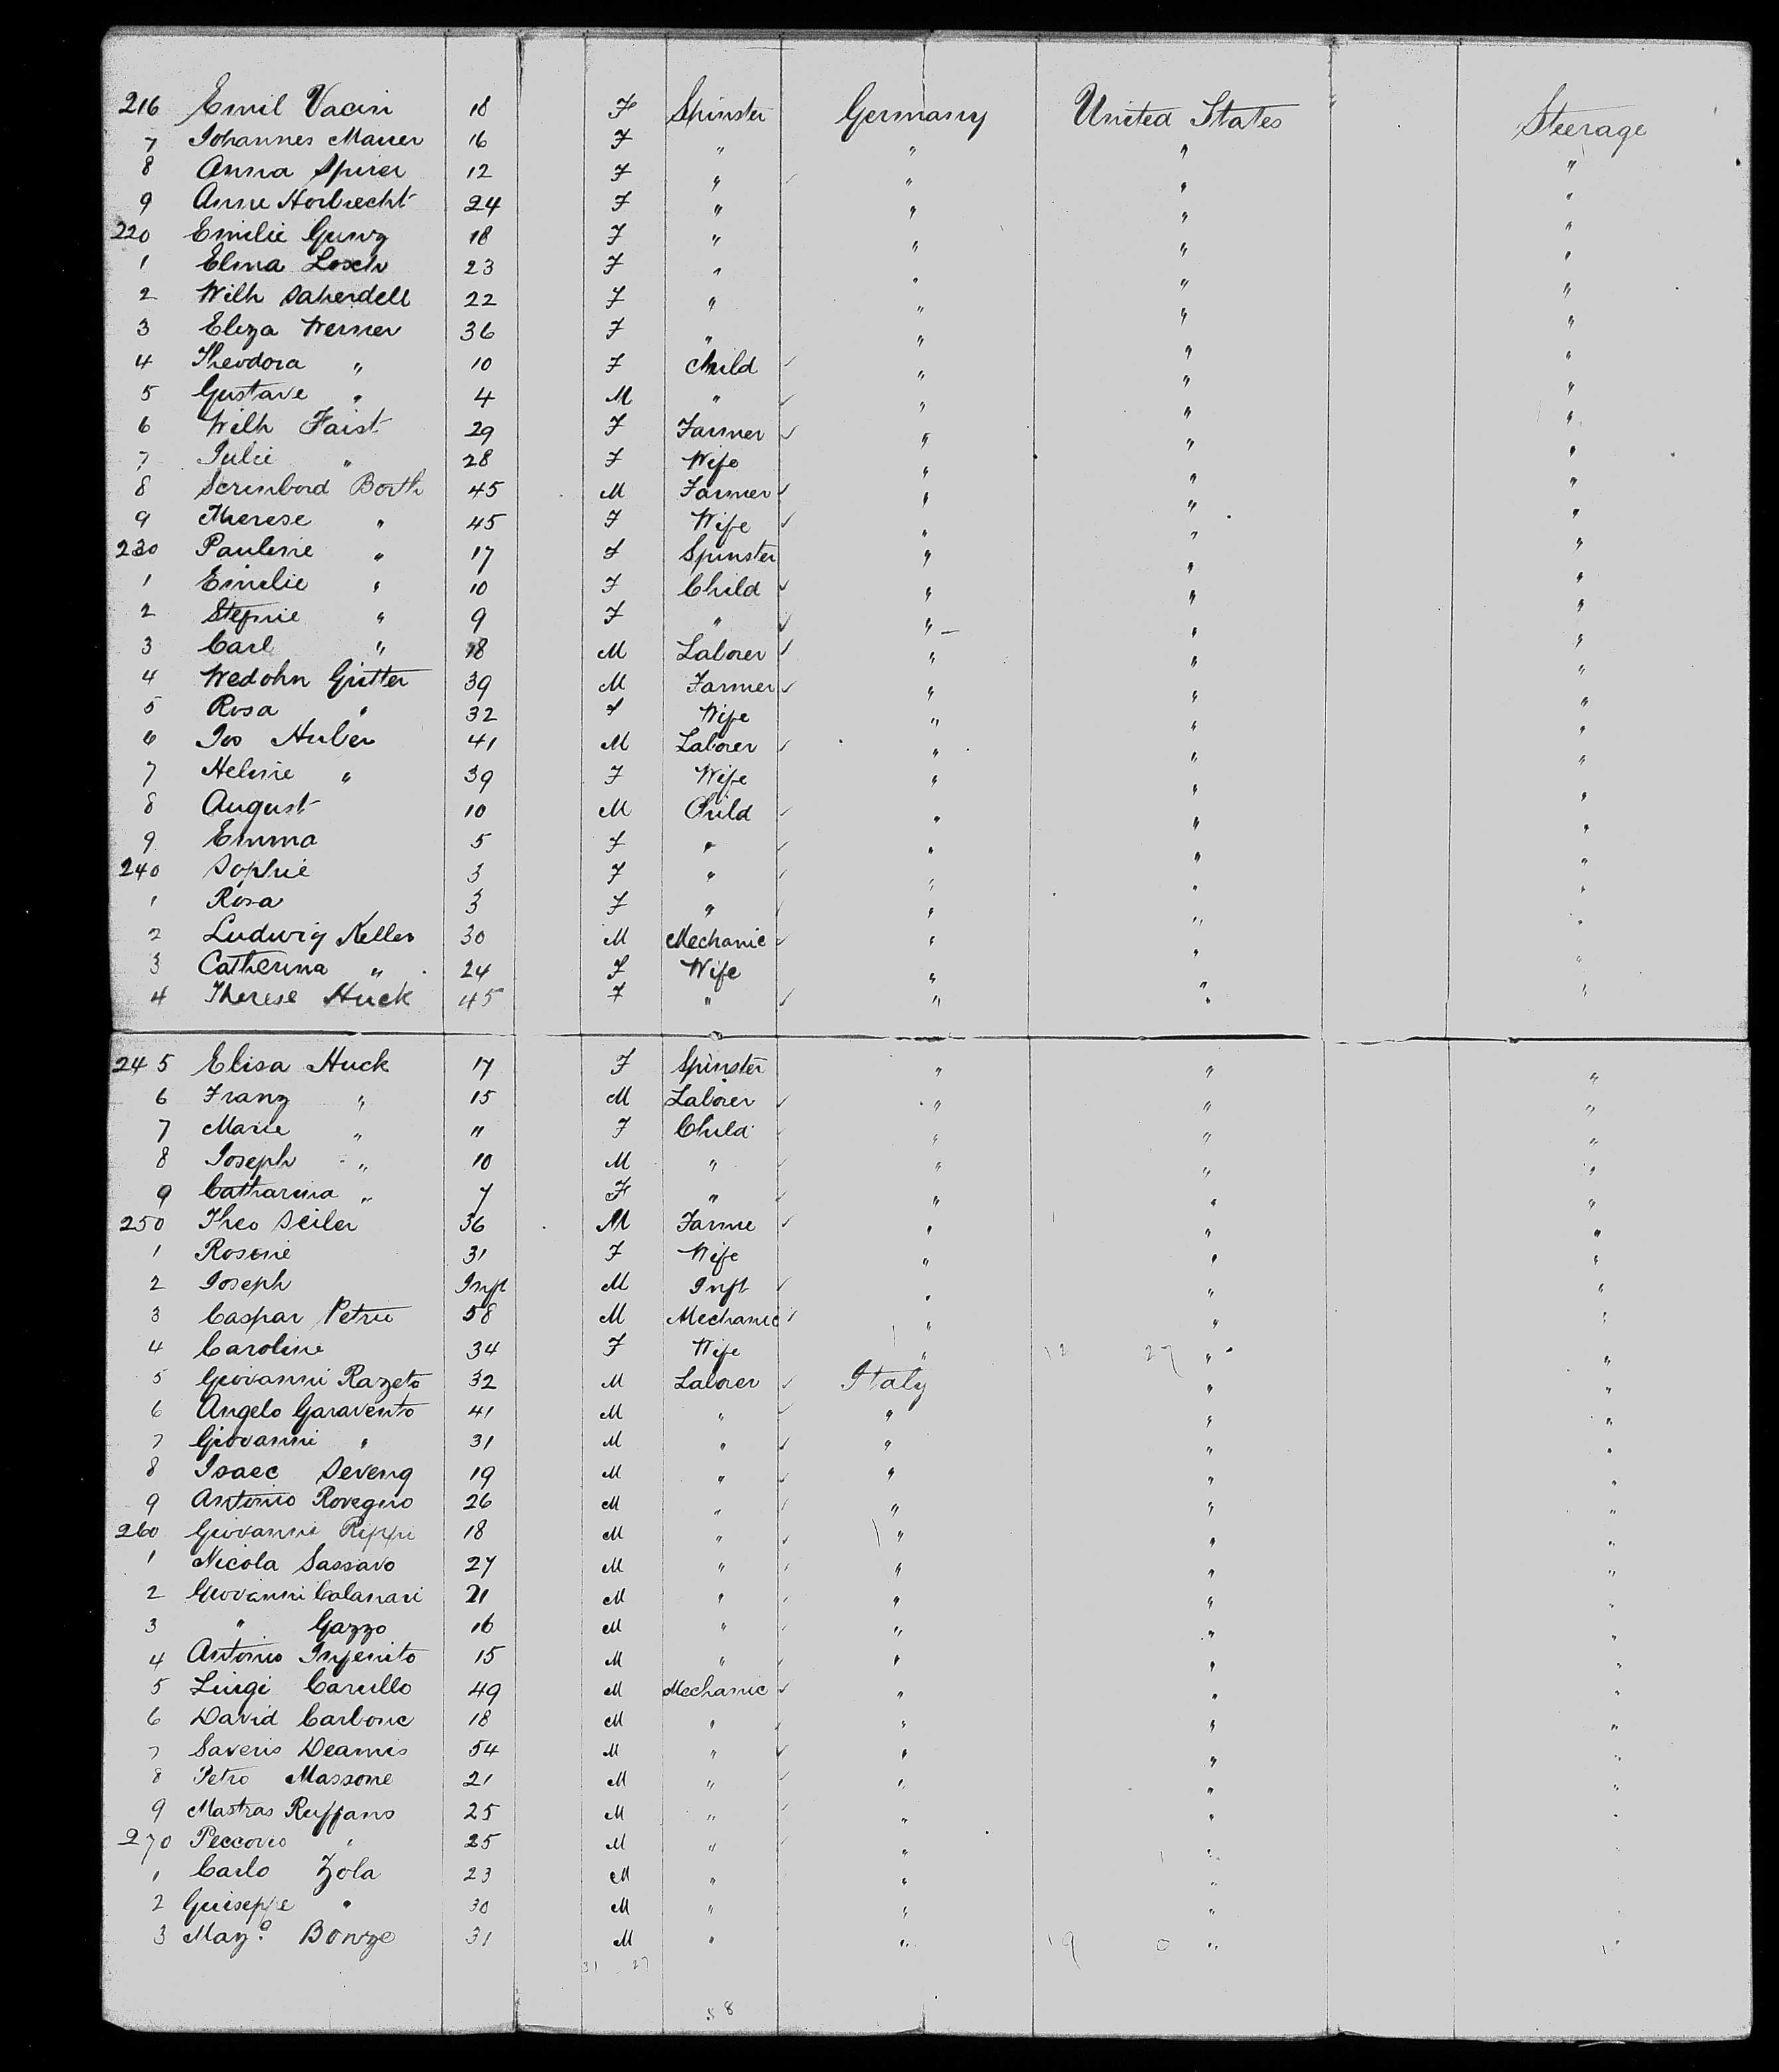 216 Emil Vacin 18 F Spinster Germany United States Steerage
7 Johannes Maurer 16 F " " " "
8 Anna Spirer 12 F " " " "
9 Anne Horbrecht 24 F " " " "
220 Emilie Gunz 18 F " " " "
1 Elina Losch 23 F " " " "
2 Wilh Saherdell 22 F " " " "
3 Eliza Werner 36 F " " " "
4 Theodora " 10 F Child " " "
5 Gustave " 4 M " " " "
6 Wilh Faist 29 F Farmer " " "
7 Julie " 28 F Wife " " "
8 Scrinbord Borth 45 M Farmer " " "
9 Therese " 45 F Wife " " "
230 Pauline " 17 F Spinster " " "
1 Emilie " 10 F Child " " "
2 Stefnie " 9 F " " " "
3 Carl " 18 M Laborer " " "
4 Wedohn Gritter 39 M Farmer " " "
5 Rosa " 32 F Wife " " "
6 Jos Huber 41 M Laborer " " "
7 Heline " 39 F Wife " " "
8 August 10 M Child " " "
9 Emma 5 F " " " "
240 Sophie 3 F " " " "
1 Rosa 3 F " " " "
2 Ludwig Keller 30 M Mechanic " " "
3 Catherina " 24 F Wife " " "
4 Therese Huck 45 F " " " "
245 Elisa Huck 17 F Spinster " " "
6 Franz " 15 M Laborer " " "
7 Marie " 11 F Child " " "
8 Joseph " 10 M " " " "
9 Catharina " 7 F " " " "
250 Theo Seiler 36 M Farme " " "
1 Rosine 31 F Wife " " "
2 Joseph Inft M Inft " " "
3 Caspar Petrie 58 M Mechanic " " "
4 Caroline 34 F Wife " 12 27 " "
5 Giovanni Razeto 32 M Laborer Italy " "
6 Angelo Garavento 41 M " " " "
7 Giovanni " 31 M " " " "
8 Isaec Seveng 19 M " " " "
9 Antonio Rovegno 26 M " " " "
260 Giovanni Rippi 18 M " " " "
1 Nicola Sassavo 27 M " " " "
2 Giovanni Calanari 21 M " " " "
3 " Gazzo 16 M " " " "
4 Antonio Injenito 15 M " " " "
5 Luigi Carullo 49 M Mechanic " " "
6 David Carbone 18 M " " " "
7 Saveris Deamis 54 M " " " "
8 Petro Massone 21 M " " " "
9 Mastras Ruffano 25 M " " " "
270 Peccorio " 25 M " " " "
1 Carlo Zola 23 M " " " "
2 Guiseppe " 30 M " " " "
3 Mazo Bonze 31 M " " 19 0 " "
31 27
58